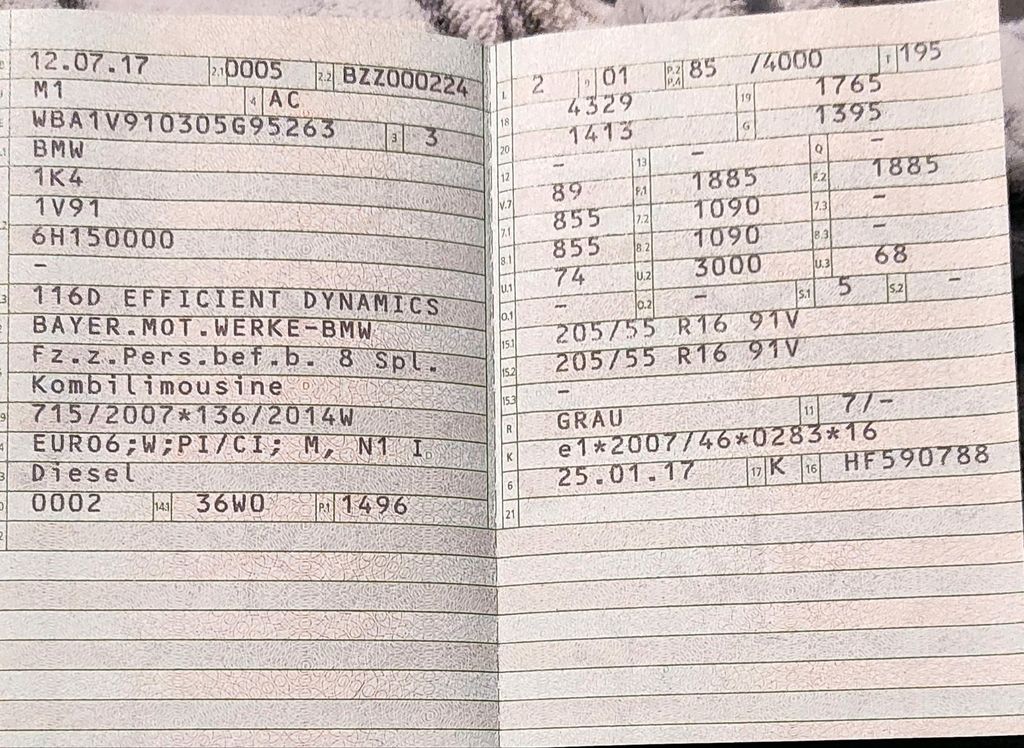 12.07.17 2.1 0005 2.2 BZZ000224
M1 4 AC
WBA1V910305G95263 3 3
BMW
1K4
1V91
6H150000
–
116D EFFICIENT DYNAMICS
BAYER.MOT.WERKE-BMW
Fz.z.Pers.bef.b. 8 Spl.
Kombilimousine
715/2007*136/2014W
EURO6;W;PI/CI; M, N1 I
Diesel
0002 14.1 36W0 P.1 1496
L 2 9 01 P.2 P.4 85 /4000 T 195
18 4329 19 1765
20 1413 G 1395
12 – 13 – Q –
V.7 89 F.1 1885 F.2 1885
7.1 855 7.2 1090 7.3 –
8.1 855 8.2 1090 8.3 –
U.1 74 U.2 3000 U.3 68
O.1 – O.2 – S.1 5 S.2 –
15.1 205/55 R16 91V
15.2 205/55 R16 91V
15.3 –
R GRAU 11 7/–
K e1*2007/46*0283*16
6 25.01.17 17 K 16 HF590788
21